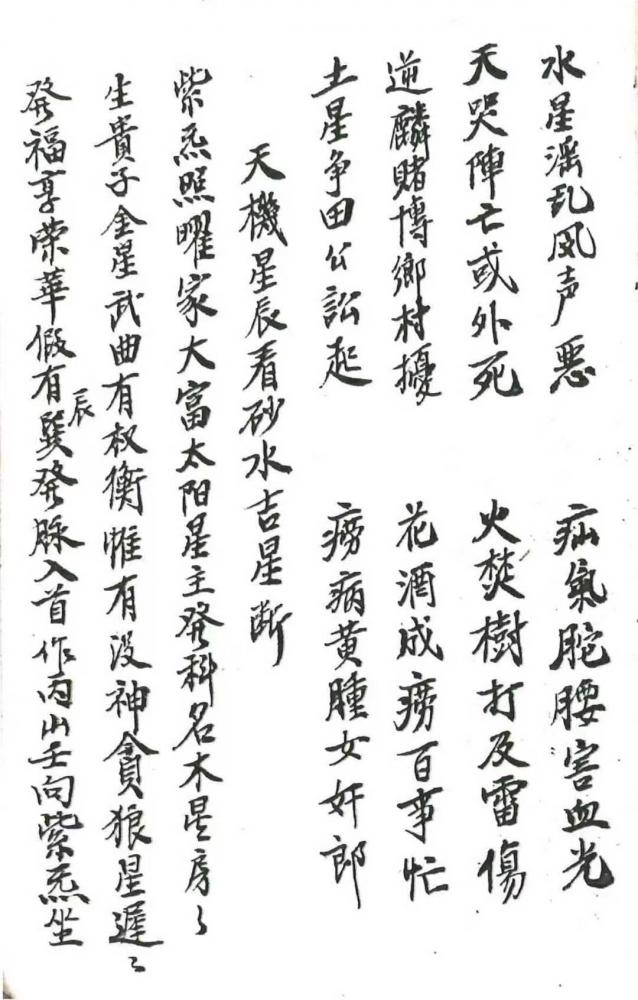 水星淫乱风声恶 疝氣駝腰害血光
天哭陣亡或外死 火焚樹打及雷傷
逆麟賭博鄉村擾 花酒成癆百事忙
土星争田公訟起 癆病黄腫女奸郎
天機星辰看砂水吉星断
紫炁照曜家大富太阳星主發科名木星房々
生貴子金星武曲有权衡惟有没神貪狼星遲々
發福享榮華假有巽辰發脉入首作丙山壬向紫炁坐